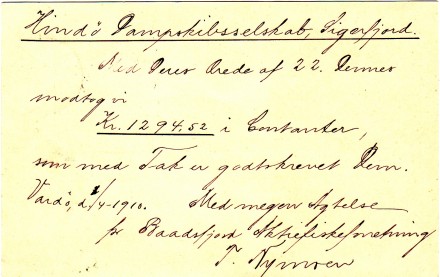 Hindö Dampskibsselskab, Sigerfjord.
Med Deres Ærede af 22. Dennes
modtog vi
Kr. 1294.52 i Contanter,
som med Tak er godtskrevet Dem.
Vardö, d. 2/4-1910. Med megen Agtelse
pr Baadsfjord Aktiefiskeforretning
T. Nymoen